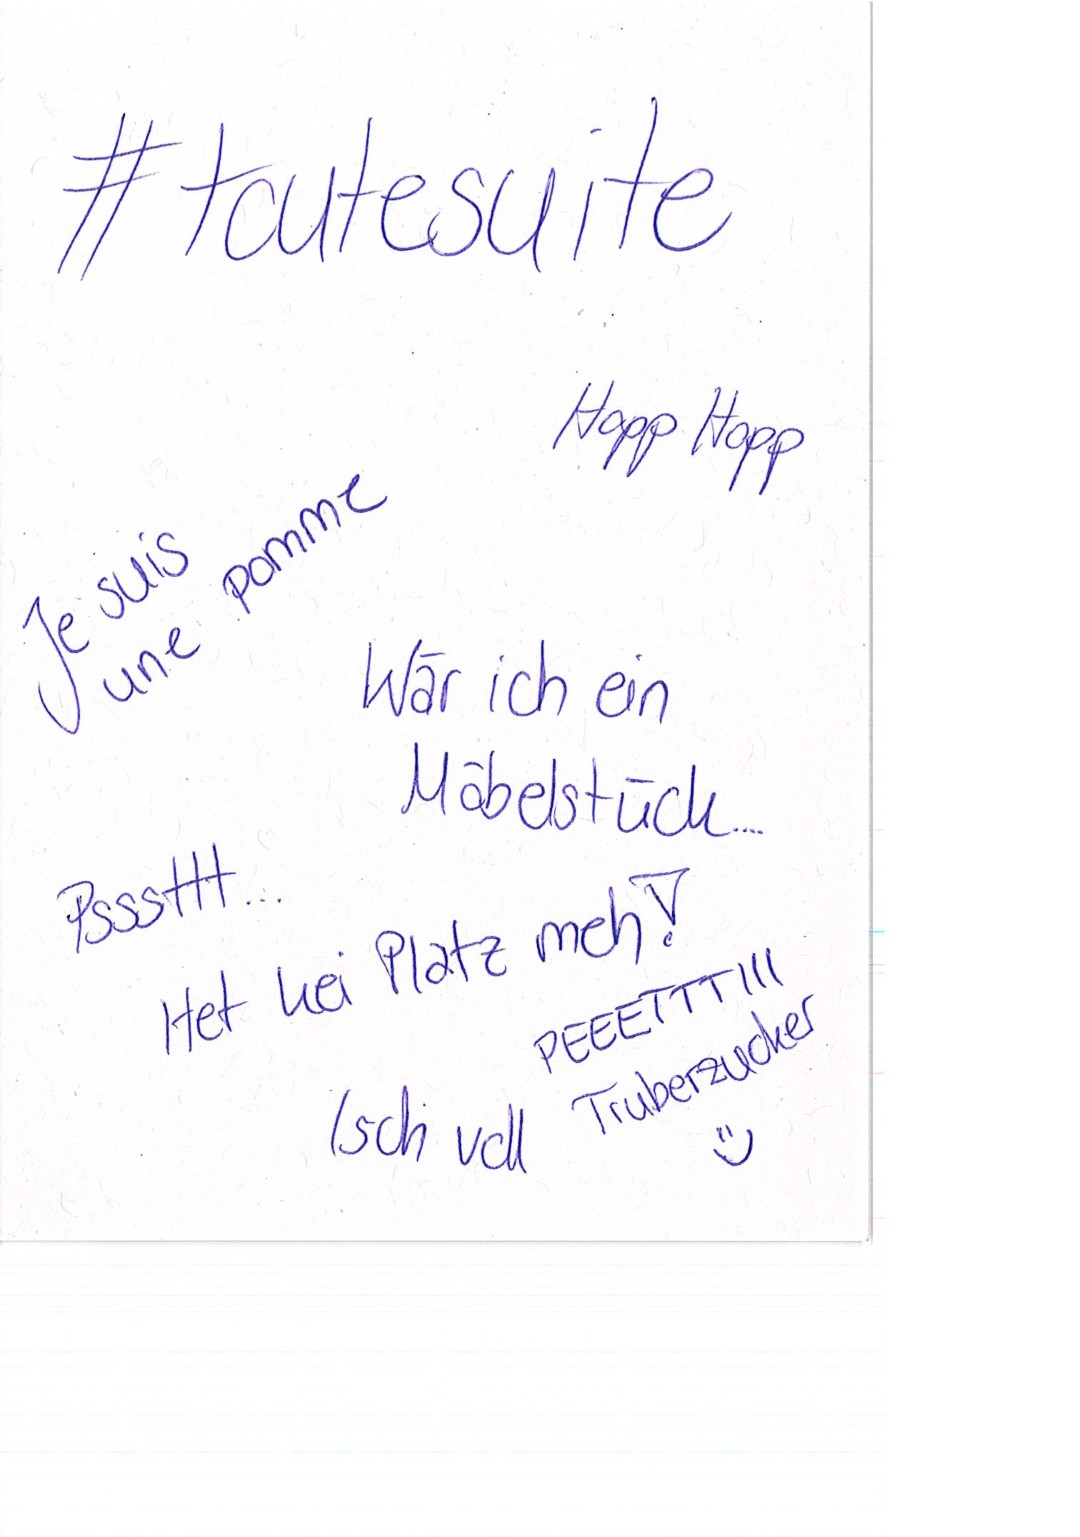 #toutesuite
Hopp Hopp
Je suis
une pomme
Wär ich ein
Möbelstück....
Pssssttt...
Het kei Platz meh!
PEEETTT!!!
Truberzucker
Isch voll